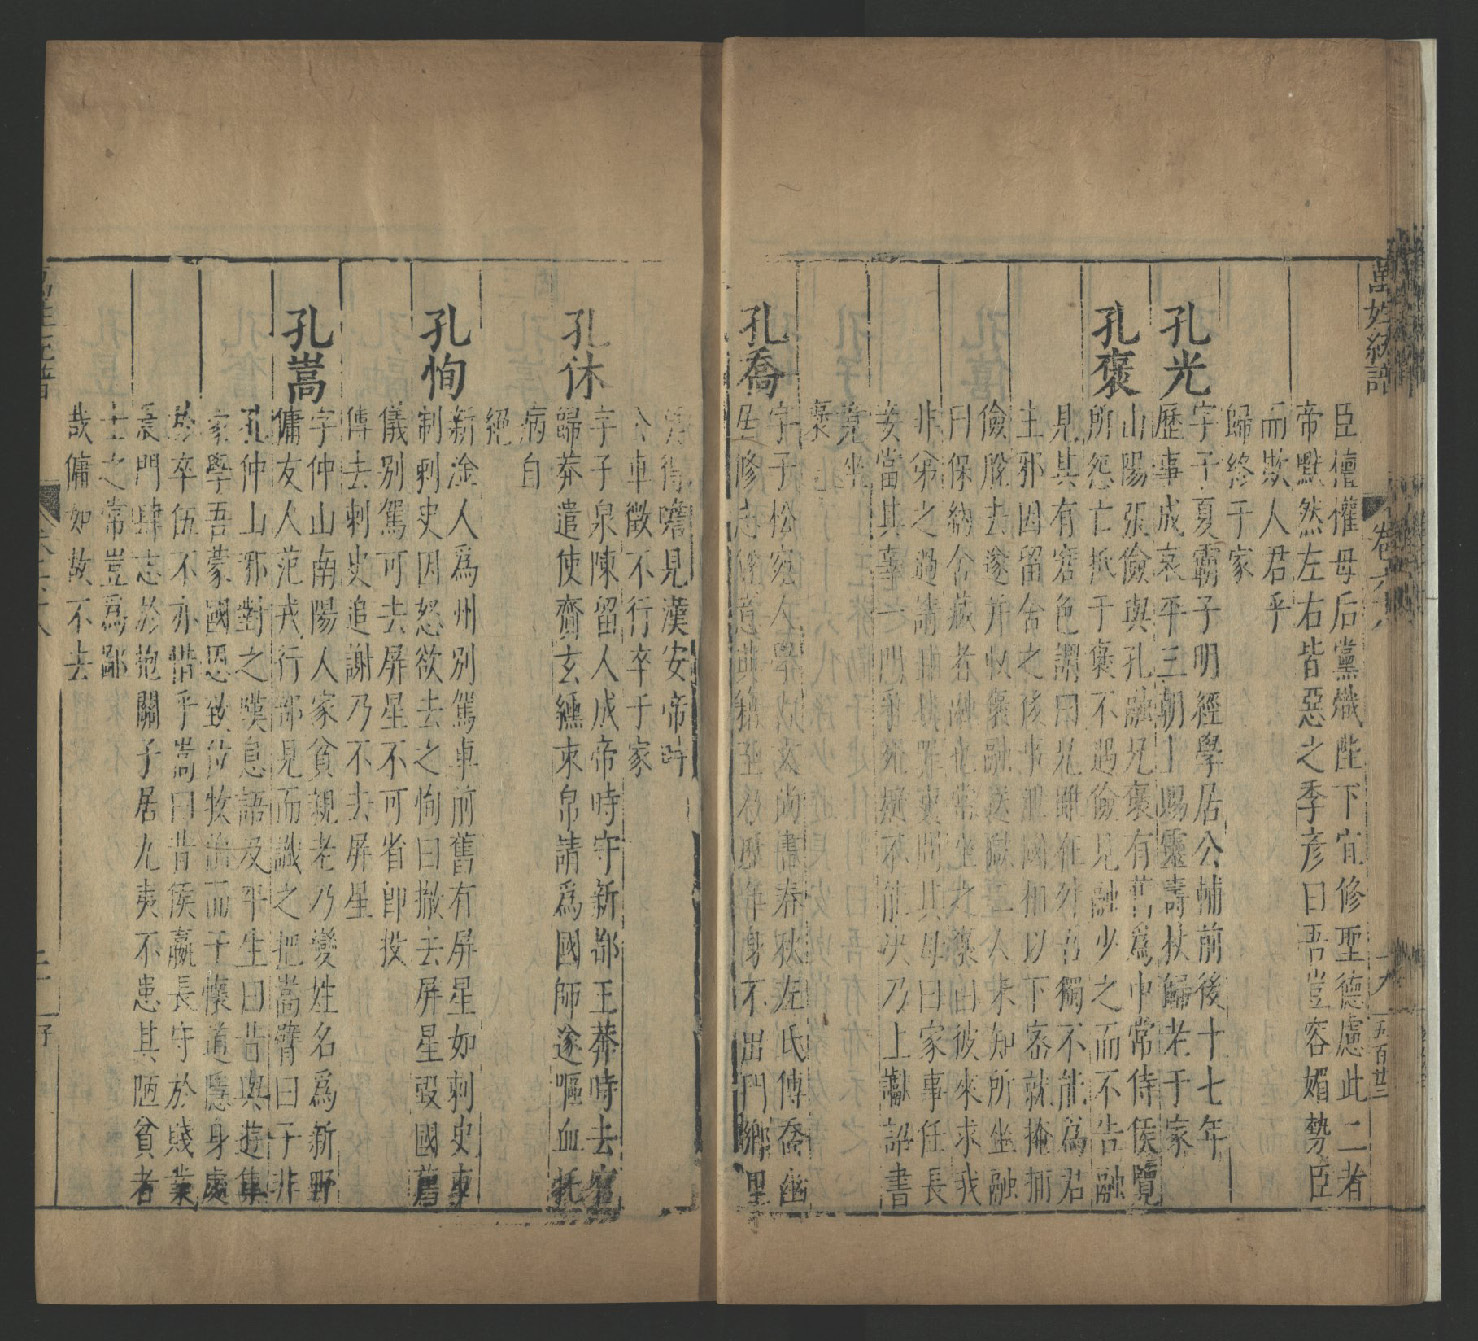 萬姓統譜
卷六
臣擅權毋后黨熾陛下宜修聖德慮此二者
帝默然左右皆惡之季彦曰吾豈容媚勢臣
而欺人君乎
歸終于家
孔光
字子夏霸子明經學居公輔前後十七年
歷事成哀平三朝上賜靈壽杖歸老于家
孔襃
山陽張儉與孔融兄襃有舊爲中常侍侯覽
所怨亡抵于襃不遇儉見融少之而不告融
見其有窘色謂曰兄雖在外吾獨不能爲君
主邪因留舍之後事泄國相以下密就掩捕
儉脫去遂并收襃融送獄二人未知所坐融
曰保納舍藏者融也當坐之襃曰彼來求我
非弟之過請甘其罪吏問其母母曰家事任長
妾當其辜一門爭死縣不能決乃上讞詔書
竟坐
襃
孔喬
字子松宛人學古文尚書春秋左氏傳喬幽
居修志銳意典籍至歷年身不出門鄉里
得瞻見漢安帝時
公車徵不行卒于家
孔休
字子泉陳留人成帝時守新都王莽時去官
歸莽遣使齎玄纁束帛請爲國師遂嘔血托
病自
絕
孔恂
新淦人爲州別駕車前舊有屏星如刺史車
制刺史因怒欲去之恂曰撤去屏星毁國舊
儀別駕可去屏星不可省卽投
傳去刺史追謝乃不去屏星
孔嵩
字仲山南陽人家貧親老乃變姓名爲新野
傭友人范戎行部見而識之把嵩臂曰子非
孔仲山邪對之嘆息語及平生曰昔與遊集
家學吾蒙國恩致位牧伯而子懷道隱身處
於卒伍不亦惜乎嵩曰昔侯嬴長守於賤業
晨門肆志於抱關子居九夷不患其陋貧者
士之常豈爲鄙
哉傭如故不去